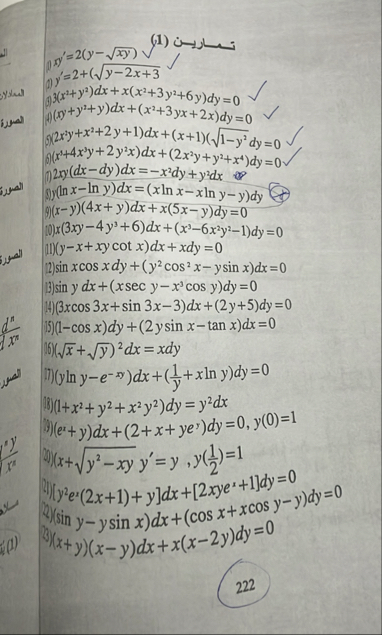 تمارين (1)
1) xy′=2(y−√xy)
2) y′=2+(√y−2x+3
3) 3(x²+y²)dx+x(x²+3y²+6y)dy=0
4) (xy+y²+y)dx+(x²+3yx+2x)dy=0
5) (2x²y+x²+2y+1)dx+(x+1)(√1−y² dy=0
6) (x⁴+4x³y+2y³x)dx+(2x²y+y²+x⁴)dy=0
7) 2xy(dx−dy)dx=−x²dy+y²dx
8) y(ln x−ln y)dx=(xln x−xln y−y)dy
9) (x−y)(4x+y)dx+x(5x−y)dy=0
10) x(3xy−4y³+6)dx+(x³−6x²y²−1)dy=0
11) (y−x+xy cot x)dx+xdy=0
12) sin x cos x dy+(y² cos² x−y sin x)dx=0
13) sin y dx+(x sec y−x³ cos y)dy=0
14) (3x cos 3x+sin 3x−3)dx+(2y+5)dy=0
15) (1−cos x)dy+(2y sin x−tan x)dx=0
16) (√x+√y)²dx=xdy
17) (y ln y−e⁻ˣʸ)dx+(1/y+x ln y)dy=0
18) (1+x²+y²+x²y²)dy=y²dx
19) (eˣ+y)dx+(2+x+yeʸ)dy=0, y(0)=1
20) (x+√y²−xy y′=y ,y(1/2)=1
21) [y²eˣ(2x+1)+y]dx+[2xyeˣ+1]dy=0
22) (sin y−y sin x)dx+(cos x+x cos y−y)dy=0
23) (x+y)(x−y)dx+x(x−2y)dy=0
222